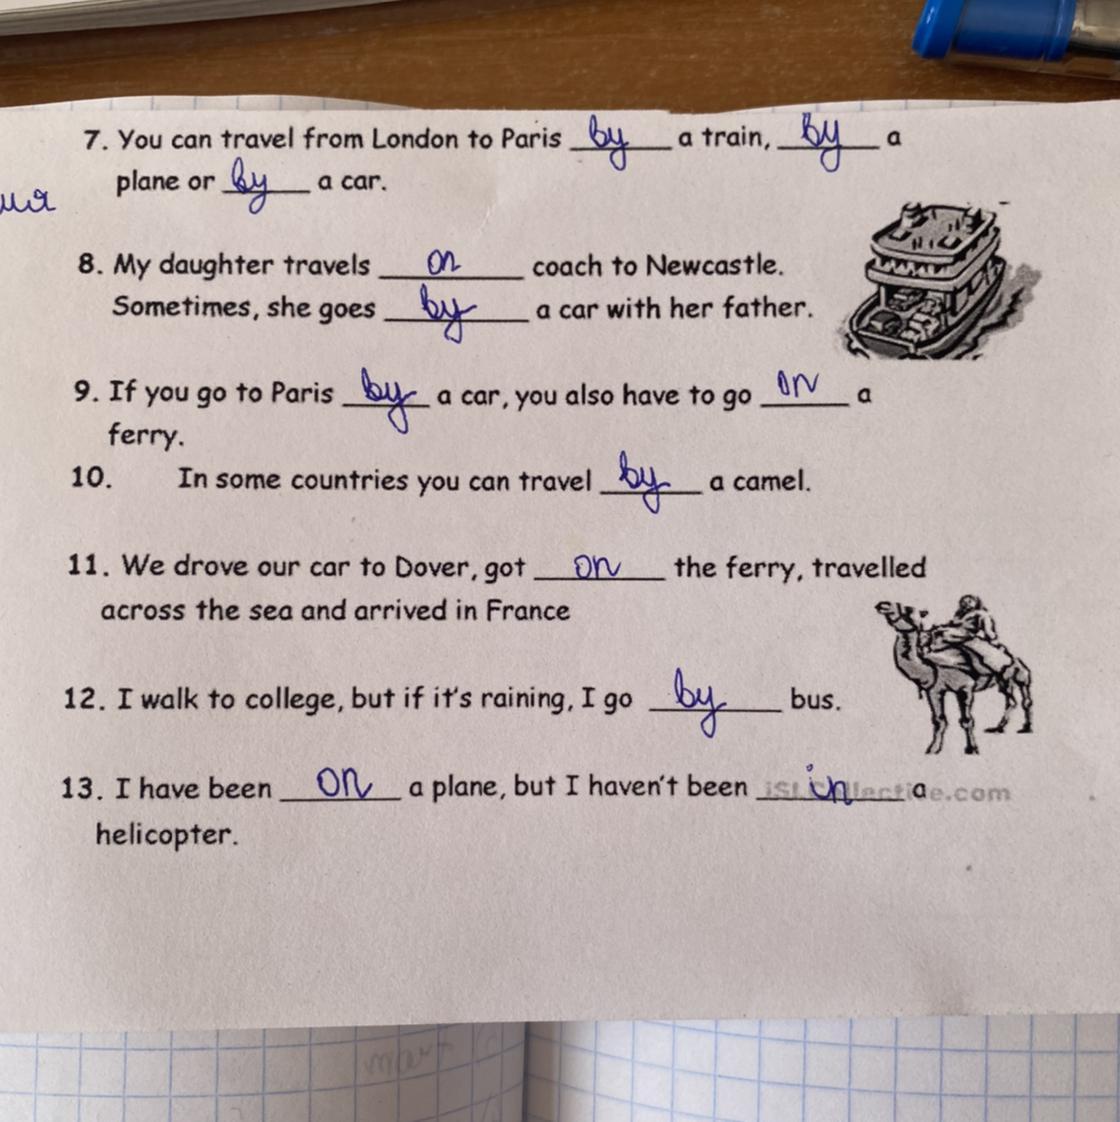 7. You can travel from London to Paris by a train, by a
plane or by a car.
8. My daughter travels on coach to Newcastle.
Sometimes, she goes by a car with her father.
9. If you go to Paris by a car, you also have to go on a
ferry.
10. In some countries you can travel by a camel.
11. We drove our car to Dover, got on the ferry, travelled
across the sea and arrived in France
12. I walk to college, but if it's raining, I go by bus.
13. I have been on a plane, but I haven't been in a
helicopter.